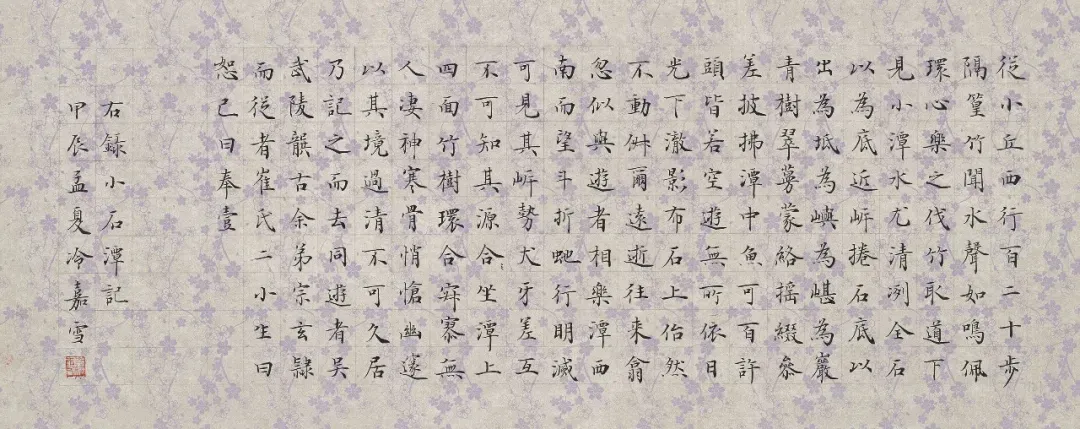 從小丘西行百二十步
隔篁竹聞水聲如鳴佩
環心樂之伐竹取道下
見小潭水尤清洌全石
以為底近岸捲石底以
出為坻為嶼為嵁為巖
青樹翠蔓蒙絡搖綴參
差披拂潭中魚可百許
頭皆若空遊無所依日
光下澈影布石上佁然
不動俶爾遠逝往來翕
忽似與遊者相樂潭西
南而望斗折虵行明滅
可見其岸勢犬牙差互
不可知其源合坐潭上
四面竹樹環合寂寥無
人淒神寒骨悄愴幽邃
以其境過清不可久居
乃記之而去同遊者吳
武陵龔古余弟宗玄隸
而從者崔氏二小生曰
恕己曰奉壹
右錄小石潭記
甲辰孟夏冷嘉雪